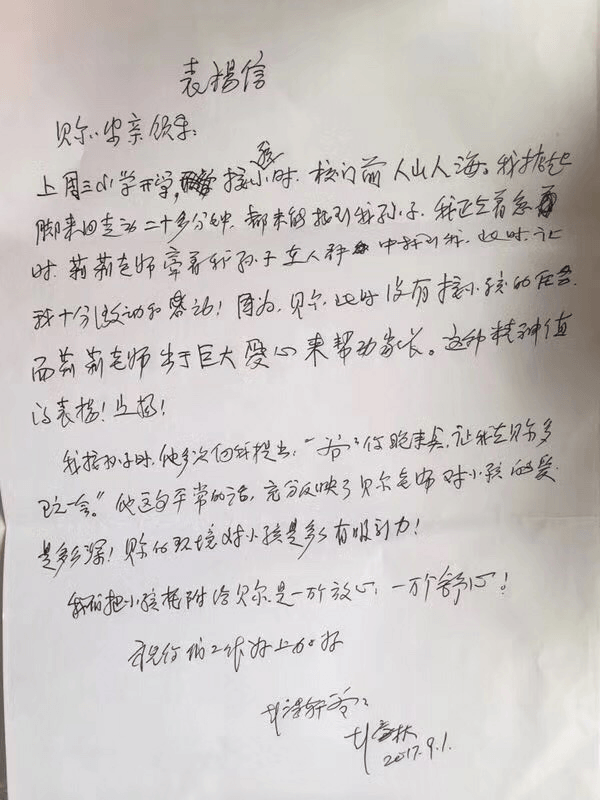 表揚信
贝尔安亲领导:
上周三小学开学,接小孩时,校门前人山人海。我掂起
脚来回走动二十多分钟,都未能找到我孙子,我正在着急
时,莉莉老师牵着我孙子在人群中找到我,此时,让
我十分激动和感动!因为,贝尔此时没有接小孩的任务,
而莉莉老师出于巨大爱心来帮助家长。这种精神值
得表揚!
我接孙子时,他多次向我提出,“爷爷你晚来点,让我在贝尔多
玩一会。”他这句平常的话,充分反映了贝尔老师对小孩的爱
是多么深!贝尔的环境对小孩是多么有吸引力!
我们把小孩托附给贝尔是一万个放心,一万个舒心!
祝你们工作好上加好
爷爷:
2017.9.1.